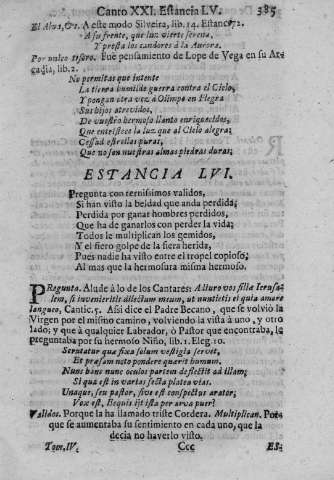 Canto XXI. Estancia LV. 385
El Alva, &c. A este modo Silveira, lib. 14. Estanc. 72.
A su frente, que luz vierte serena,
Y presta los candores à la Aurora.
Por nuevo tesoro. Fue pensamiento de Lope de Vega en su Ar-
cadia, lib. 2.
No permitas que intente
La tierra humilde guerra contra el Cielo,
Y pongan otra vez à Olimpo en Flegra
Sus hijos atrevidos,
De vuestro hermoso llanto enriquecidos,
Que entristece la luz que al Cielo alegra;
Cessad estrellas puras,
Que no son nuestras almas piedras duras;
ESTANCIA LVI.
Pregunta con ternissimos validos,
Si han visto la beldad que anda perdida;
Perdida por ganar hombres perdidos,
Que ha de ganarlos con perder la vida;
Todos le multiplican los gemidos,
Y el fiero golpe de la fiera herida,
Pues nadie ha visto entre el tropel copioso;
Al mas que la hermosura misma hermoso.
Pregunta. Alude à lo de los Cantares: Adiuro vos filiæ Ierusa-
lem, si inveneritis dilectum meum, ut nuntietis ei quia amore
langueo, Cantic. 5. Assi dice el Padre Becano, que se volviò la
Virgen por el mismo camino, volviendo la vista à uno, y otro
lado; y que à qualquier Labrador, ò Pastor que encontraba, le
preguntaba por su hermoso Niño, lib. 1. Eleg. 10.
Scrutatur qua fixa solum vestigia servet,
Et prasam noto pondere quærit humum.
Nunc hanc nunc oculos partem deflectit ad illam;
Si qua est in varias secta platea vias.
Unaque, seu pastor, sive est conspectus arator;
Vox est, Ecquis ijt ista per arva puer?
Validos. Porque la ha llamado triste Cordera. Multiplican. Por-
que se aumentaba su sentimiento en cada uno, que la
decia no haverlo visto.
Tom. IV. Ccc ES-